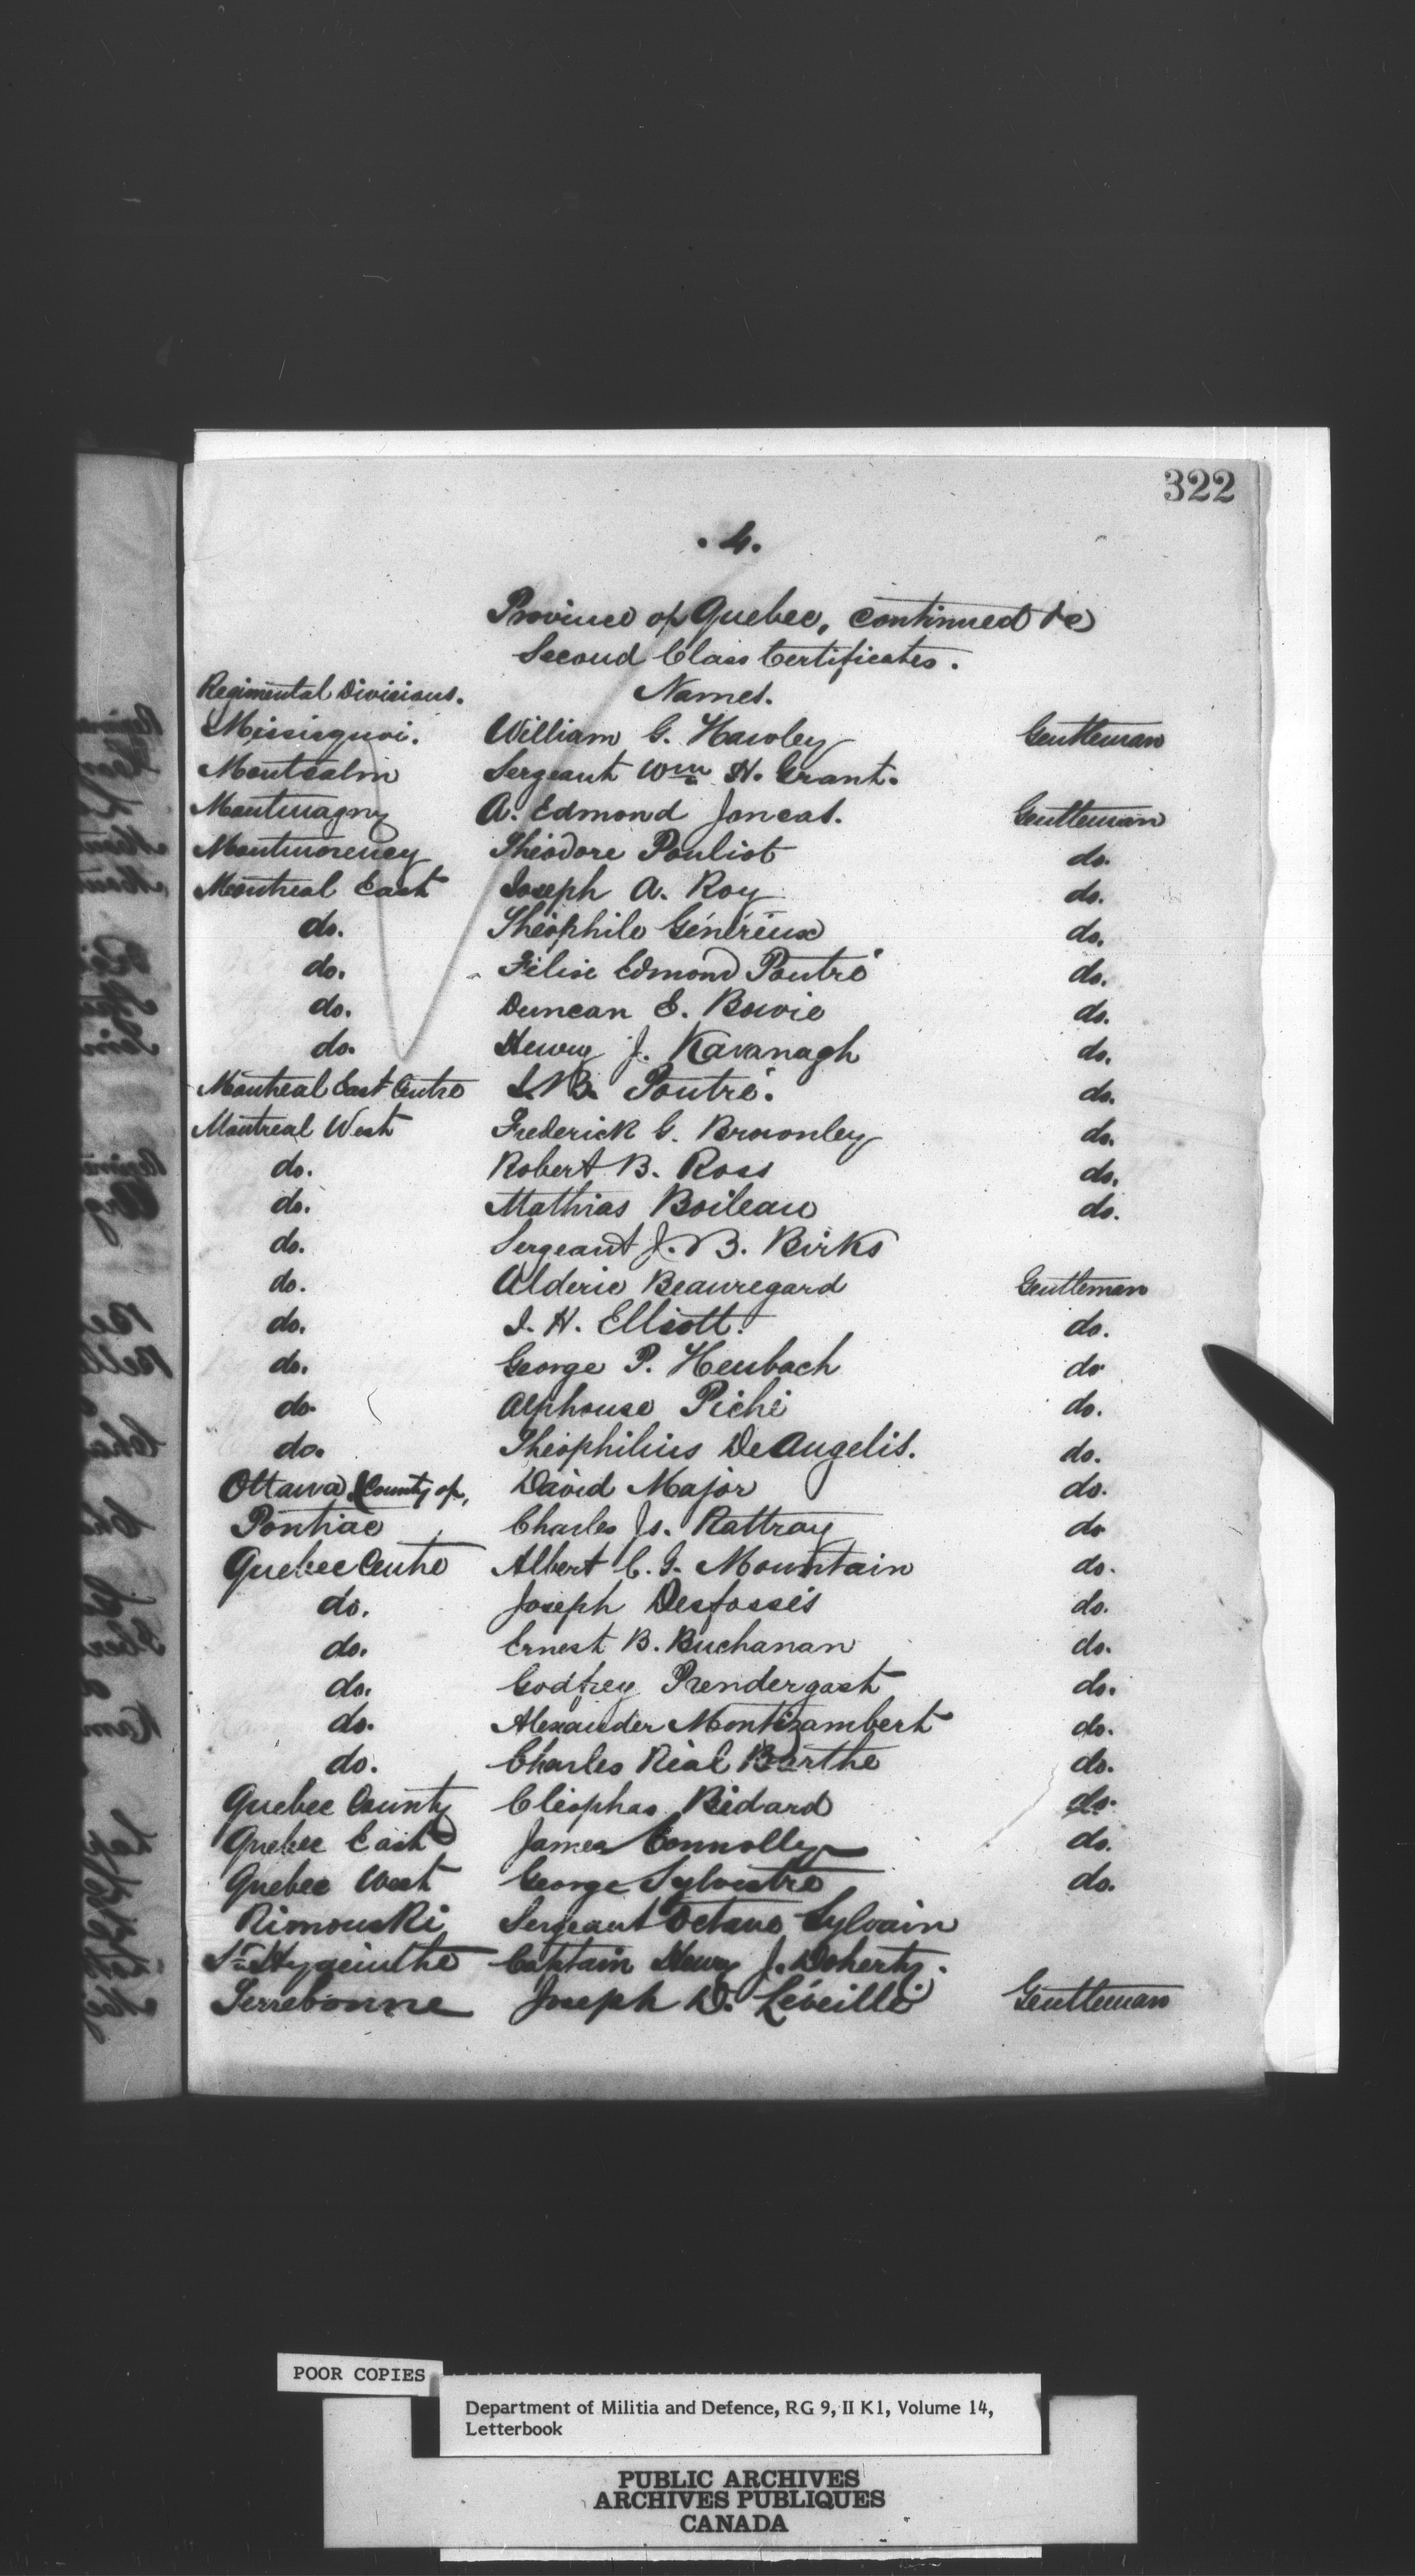 322
. 4.
Province of Quebec, continued &c
Second Class Certificates.
Regimental Divisions. Names.
Missisquoi. William G. Hawley Gentleman
Montcalm Sergeant Wm H. Grant.
Montmagny A. Edmond Joncas. Gentleman
Montmorency Théodore Pouliot do.
Montreal East Joseph A. Roy do.
do. Théophile Généreux do.
do. Felix Edmond Poutré do.
do. Duncan E. Bowie do.
do. Henry J. Kavanagh do.
Montreal East Centre L.B. Poutré. do.
Montreal West Frederick G. Brownley do.
do. Robert B. Ross do.
do. Mathias Boileau do.
do. Sergeant J. B. Birks
do. Alderic Beauregard Gentleman
do. I. H. Elliott. do.
do. George P. Heubach do
do. Alphonse Piché do.
do. Théophilius DeAngelis. do.
Ottawa, County of, David Major do.
Pontiac Charles Js. Rattray do
Quebec Centre Albert C. G. Mountain do.
do. Joseph Desfossés do.
do. Ernest B. Buchanan do.
do. Godfrey Prendergast do.
do. Alexander Montizambert do.
do. Charles Réal Barthe do.
Quebec County Cléophas Bédard do.
Quebec East James Connolly do.
Quebec West George Sylvestre do.
Rimouski Sergeant Octave Sylvain
St. Hyacinthe Captain Henry J. Doherty.
Terrebonne Joseph D. Léveillé Gentleman
POOR COPIES
Department of Militia and Defence, RG 9, II K1, Volume 14,
Letterbook
PUBLIC ARCHIVES
ARCHIVES PUBLIQUES
CANADA